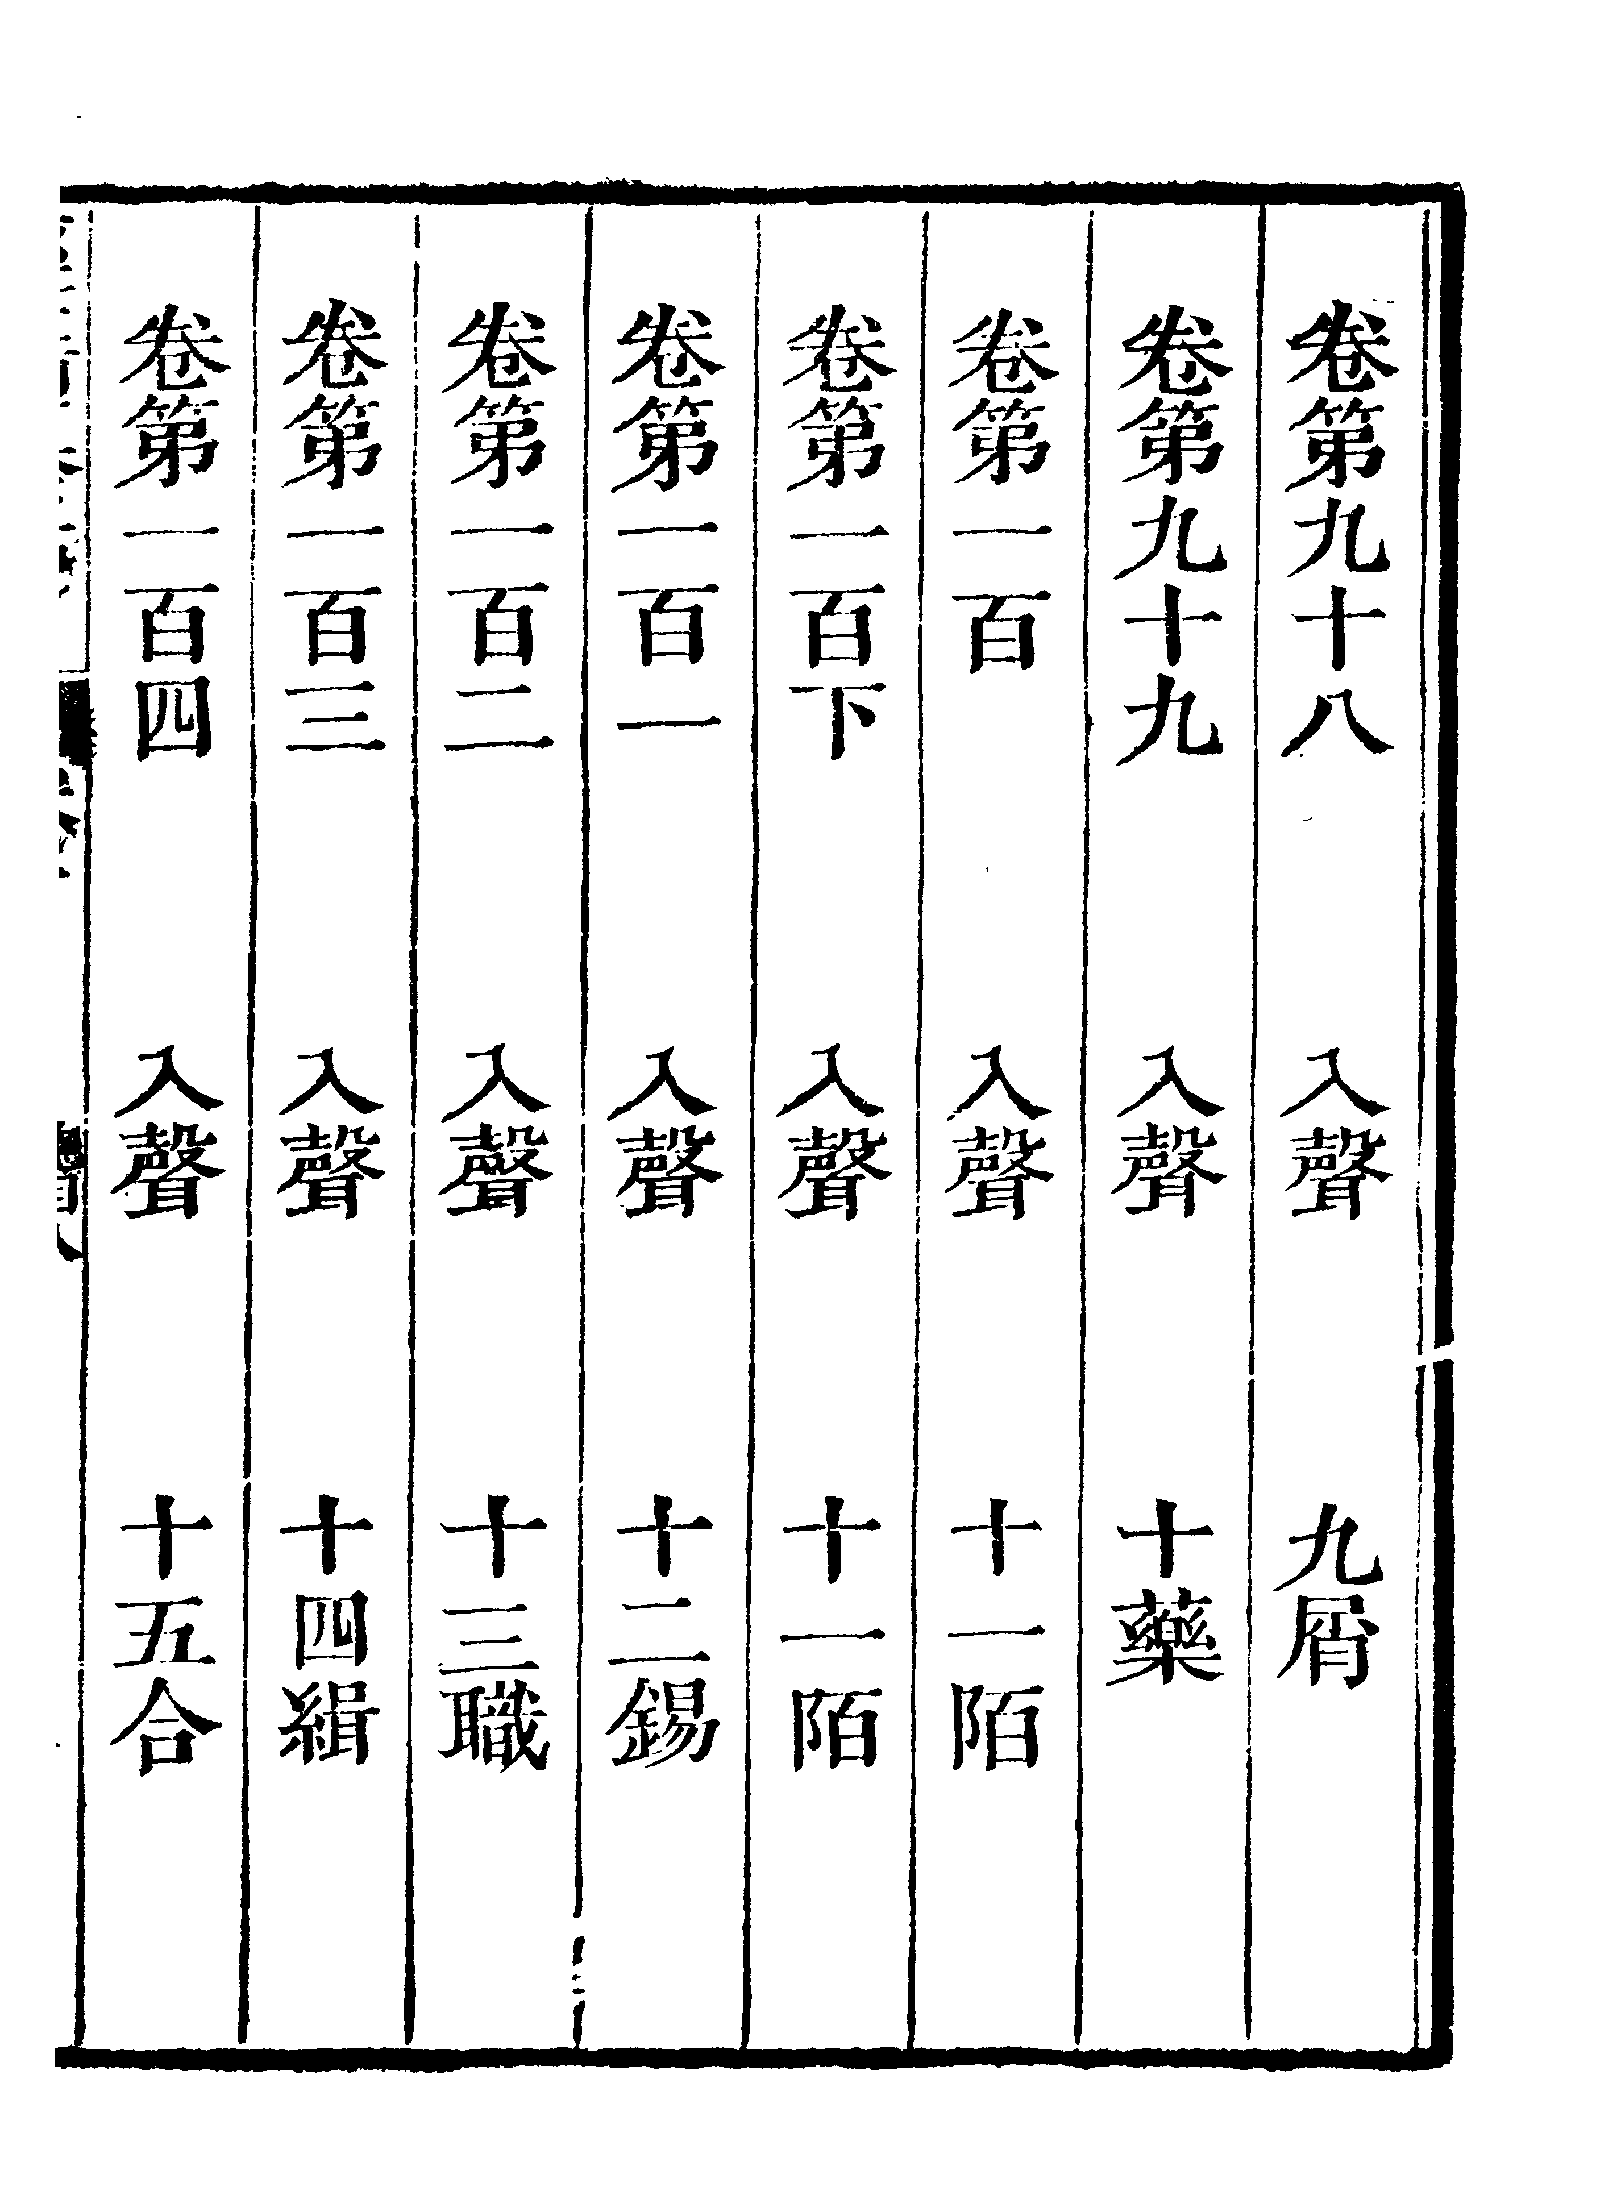 卷第九十八　入聲　九屑
卷第九十九　入聲　十藥
卷第一百　入聲　十一陌
卷第一百下　入聲　十一陌
卷第一百一　入聲　十二錫
卷第一百二　入聲　十三職
卷第一百三　入聲　十四緝
卷第一百四　入聲　十五合